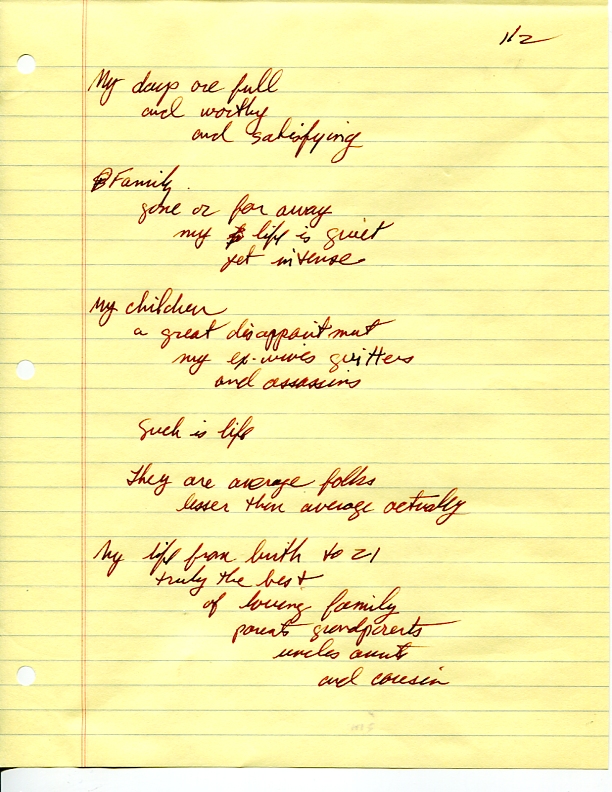 1/2
My days are full
and worthy
and satisfying
Family
gone or far away
my life is quiet
yet intense
My children
a great disappointment
my ex-wives quitters
and assassins
Such is life
They are average folks
lesser then average actually
My life from birth to 21
truly the best
of loving family
parents grandparents
uncles aunts
and cousin